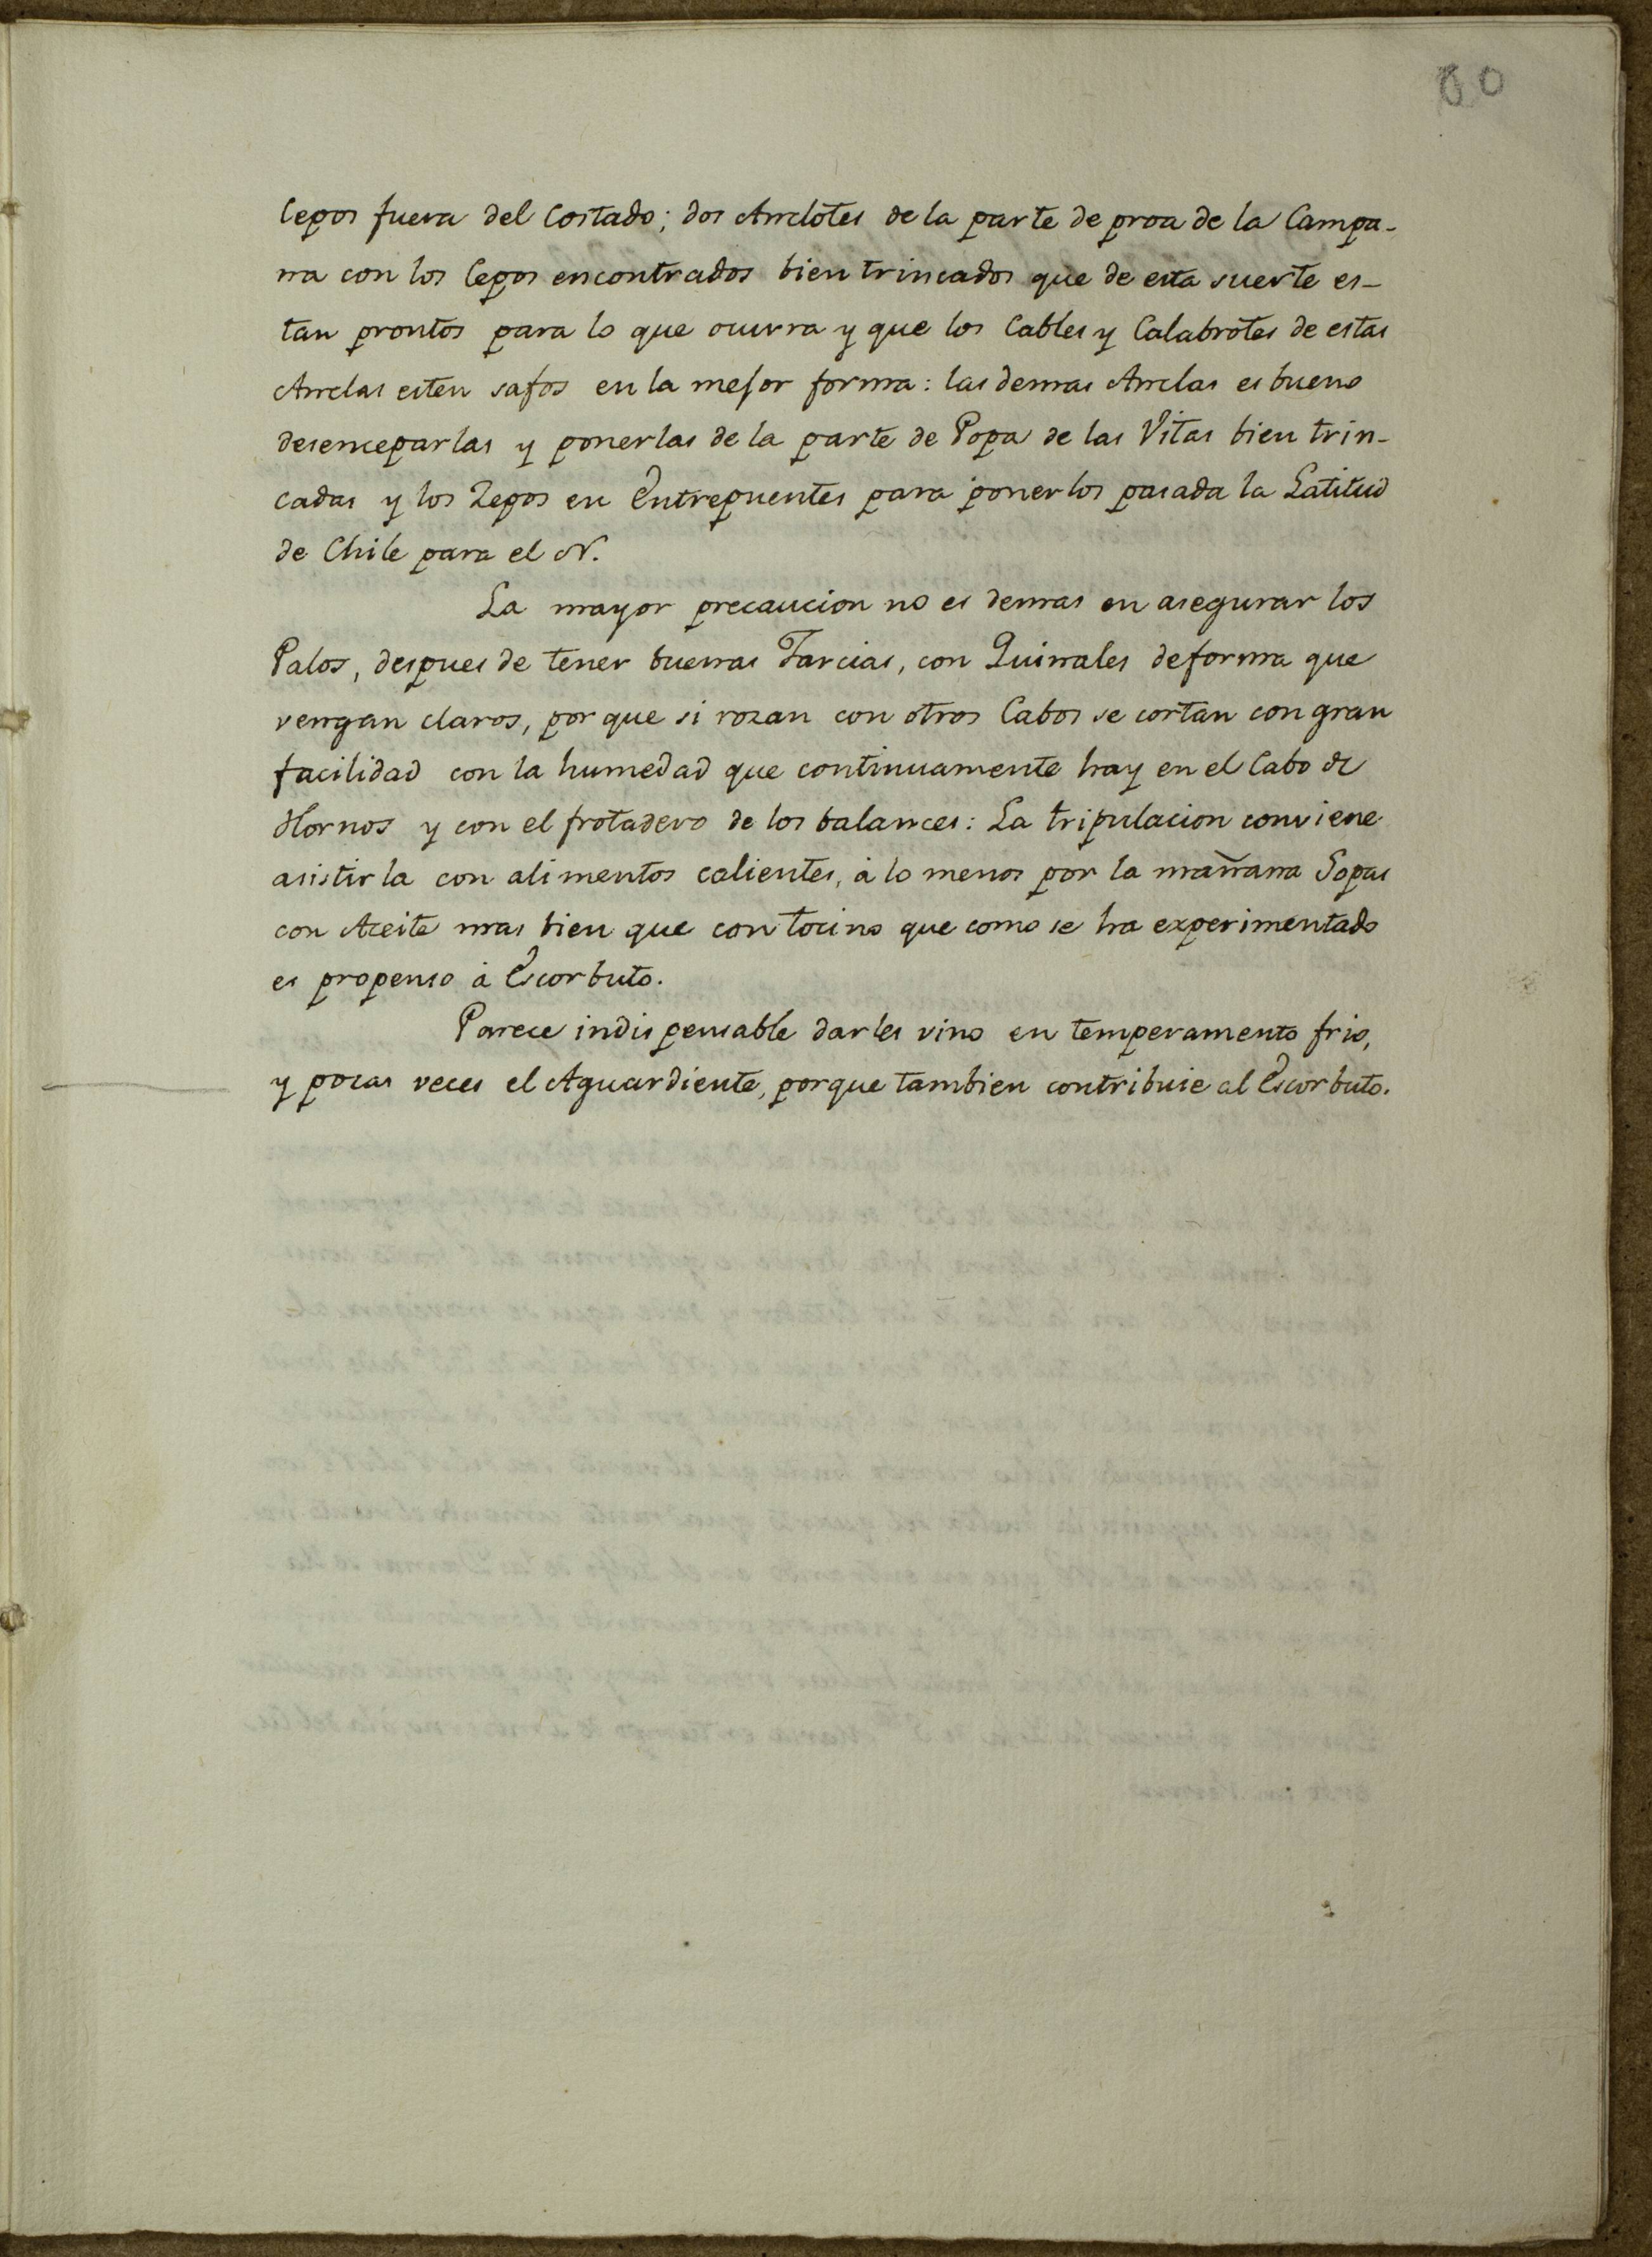 80
Cepos fuera del Costado; dos Anclotes de la parte de proa de la Campa-
na con los Cepos encontrados bien trincados que de esta suerte es-
tan prontos para lo que ocurra y que los Cables y Calabrotes de estas
Anclas esten safos en la mejor forma: las demas Anclas es bueno
desenceparlas y ponerlas de la parte de Popa de las Vitas bien trin-
cadas y los Zepos en Entrepuentes para ponerlos pasada la Latitud
de Chile para el N.
La mayor precaucion no es demas en asegurar los
Palos, despues de tener buenas Jarcias, con Quinales de forma que
vengan claros, por que si rozan con otros Cabos se cortan con gran
facilidad con la humedad que continuamente hay en el Cabo de
Hornos y con el frotadero de los balances: La tripulacion conviene
asistirla con alimentos calientes, à lo menos por la mañana Sopas
con Azeite mas bien que con tocino que como se ha experimentado
es propenso à Escorbuto.
Parece indispensable darles vino en temperamento frio,
y pocas veces el Aguardiente, porque tambien contribuie al Escorbuto.